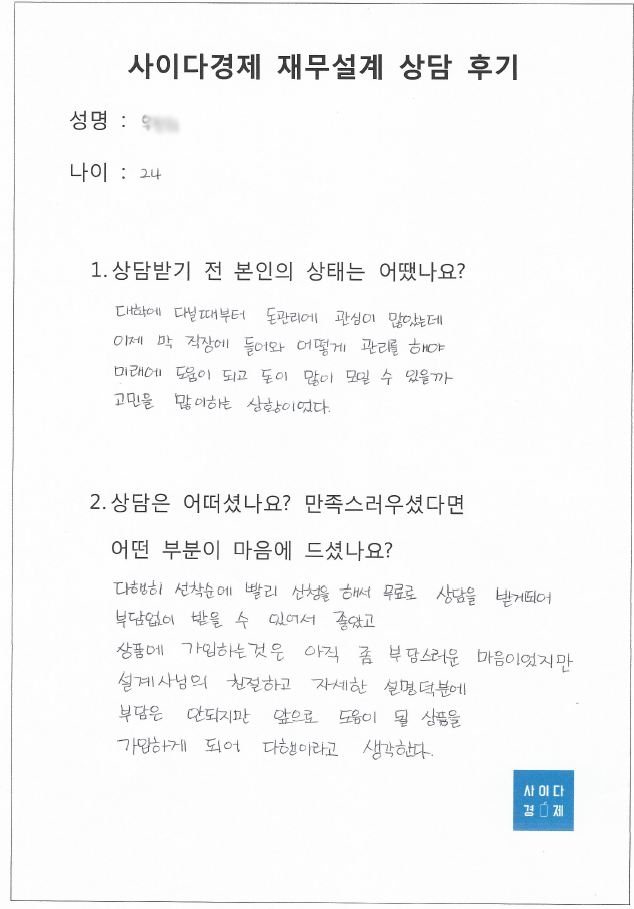 사이다경제 재무설계 상담 후기
성명 :
나이 : 24
1. 상담받기 전 본인의 상태는 어땠나요?
대학에 다닐때부터 돈관리에 관심이 많았는데
이제 막 직장에 들어와 어떻게 관리를 해야
미래에 도움이 되고 돈이 많이 모일 수 있을까
고민을 많이하는 상황이었다.
2. 상담은 어떠셨나요? 만족스러우셨다면
어떤 부분이 마음에 드셨나요?
다행히 선착순에 빨리 신청을 해서 무료로 상담을 받게되어
부담없이 받을 수 있어서 좋았고
상품에 가입하는것은 아직 좀 부담스러운 마음이었지만
설계사님의 친절하고 자세한 설명덕분에
부담은 안되지만 앞으로 도움이 될 상품을
가입하게 되어 다행이라고 생각한다.
사이다
경제